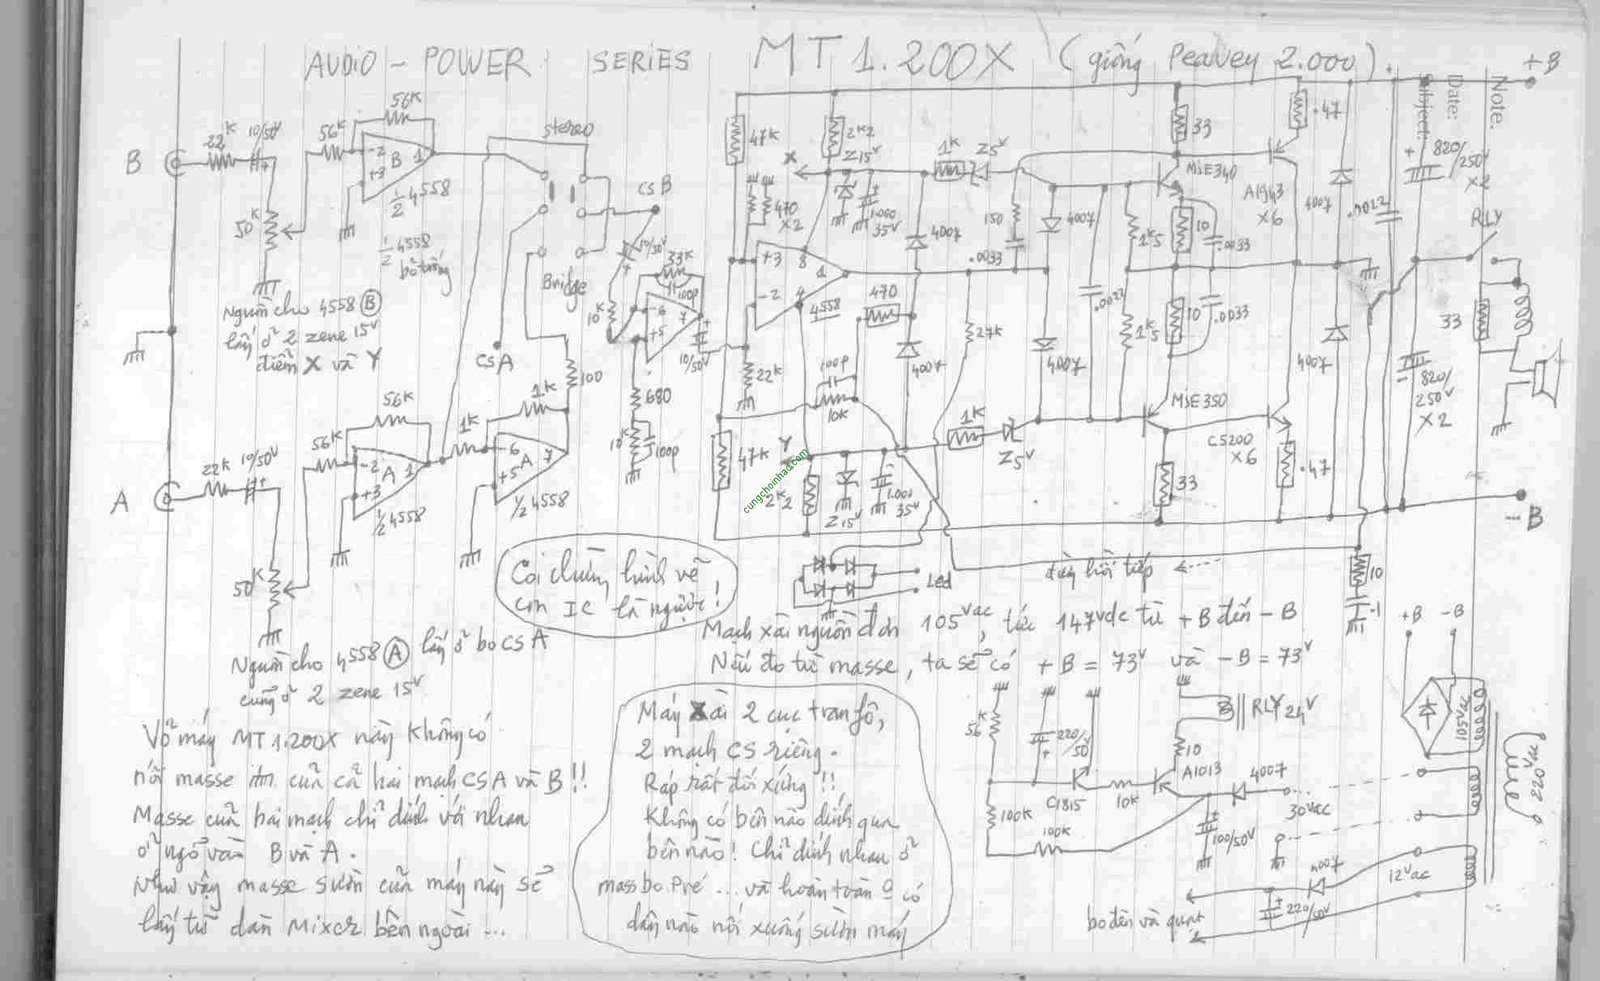 AUDIO - POWER SERIES MT1.200X (giống Peavey 2.000).
+B
Note:
Date:
Subject:
56K
stereo
B
22K
10/50V
56K
-2
+3
B
1
1/2 4558
50K
1/2 4558
bỏ trống
Bridge
CSB
CSA
10/50V
33K
100p
10K
-6
+5
7
10/50V
680
10K
100p
100
Nguồn cho 4558 (B)
lấy ở 2 zene 15V
điểm X và Y
47K
2K2
Z15V
X
470
X2
1.000
35V
1K
Z5V
4007
150
.0033
4007
1K5
MJE340
10
.0033
33
.47
A1943
X6
4007
.0022
820/
250V
X2
RLY
+3
-2
8
1
4
4558
470
4007
27K
.0022
4007
1K5
10
.0033
4007
33
22K
100p
10K
47K
Y
2K2
Z15V
1.000
35V
1K
Z5V
MJE350
33
C5200
X6
.47
820/
250V
X2
-B
cungchoinhac.com
56K
A
22K
10/50V
56K
-2
+3
A
1
1/2 4558
1K
1K
-6
+5
A
7
1/2 4558
50K
Coi chừng hình vẽ
con IC là ngược!
Led
điểm hồi tiếp
10
.1
Nguồn cho 4558 (A) lấy ở bo CSA
cũng ở 2 zene 15V
Mạch xài nguồn đơn 105Vac, tức 147Vdc từ +B đến -B
Nếu đo từ masse, ta sẽ có +B = 73V và -B = 73V
Vỏ máy MT1.200X này không có
nối masse của cả hai mạch CSA và B!!
Masse của hai mạch chỉ dính với nhau
ở ngõ vào B và A.
Như vậy masse sườn của máy này sẽ
lấy từ dàn Mixer bên ngoài ...
Máy Xài 2 cục tranfô,
2 mạch CS riêng.
Ráp rất đối xứng!!
Không có bên nào dính qua
bên nào! Chỉ dính nhau ở
mass bo Pré ... và hoàn toàn 0 có
dây nào nối xuống sườn máy
56K
220/50V
C1815
10K
100K
100K
A1013
10
RLY 24V
4007
100/50V
30Vac
4007
12Vac
220/50V
bo đèn và quạt
+B
-B
105Vac
220Vac